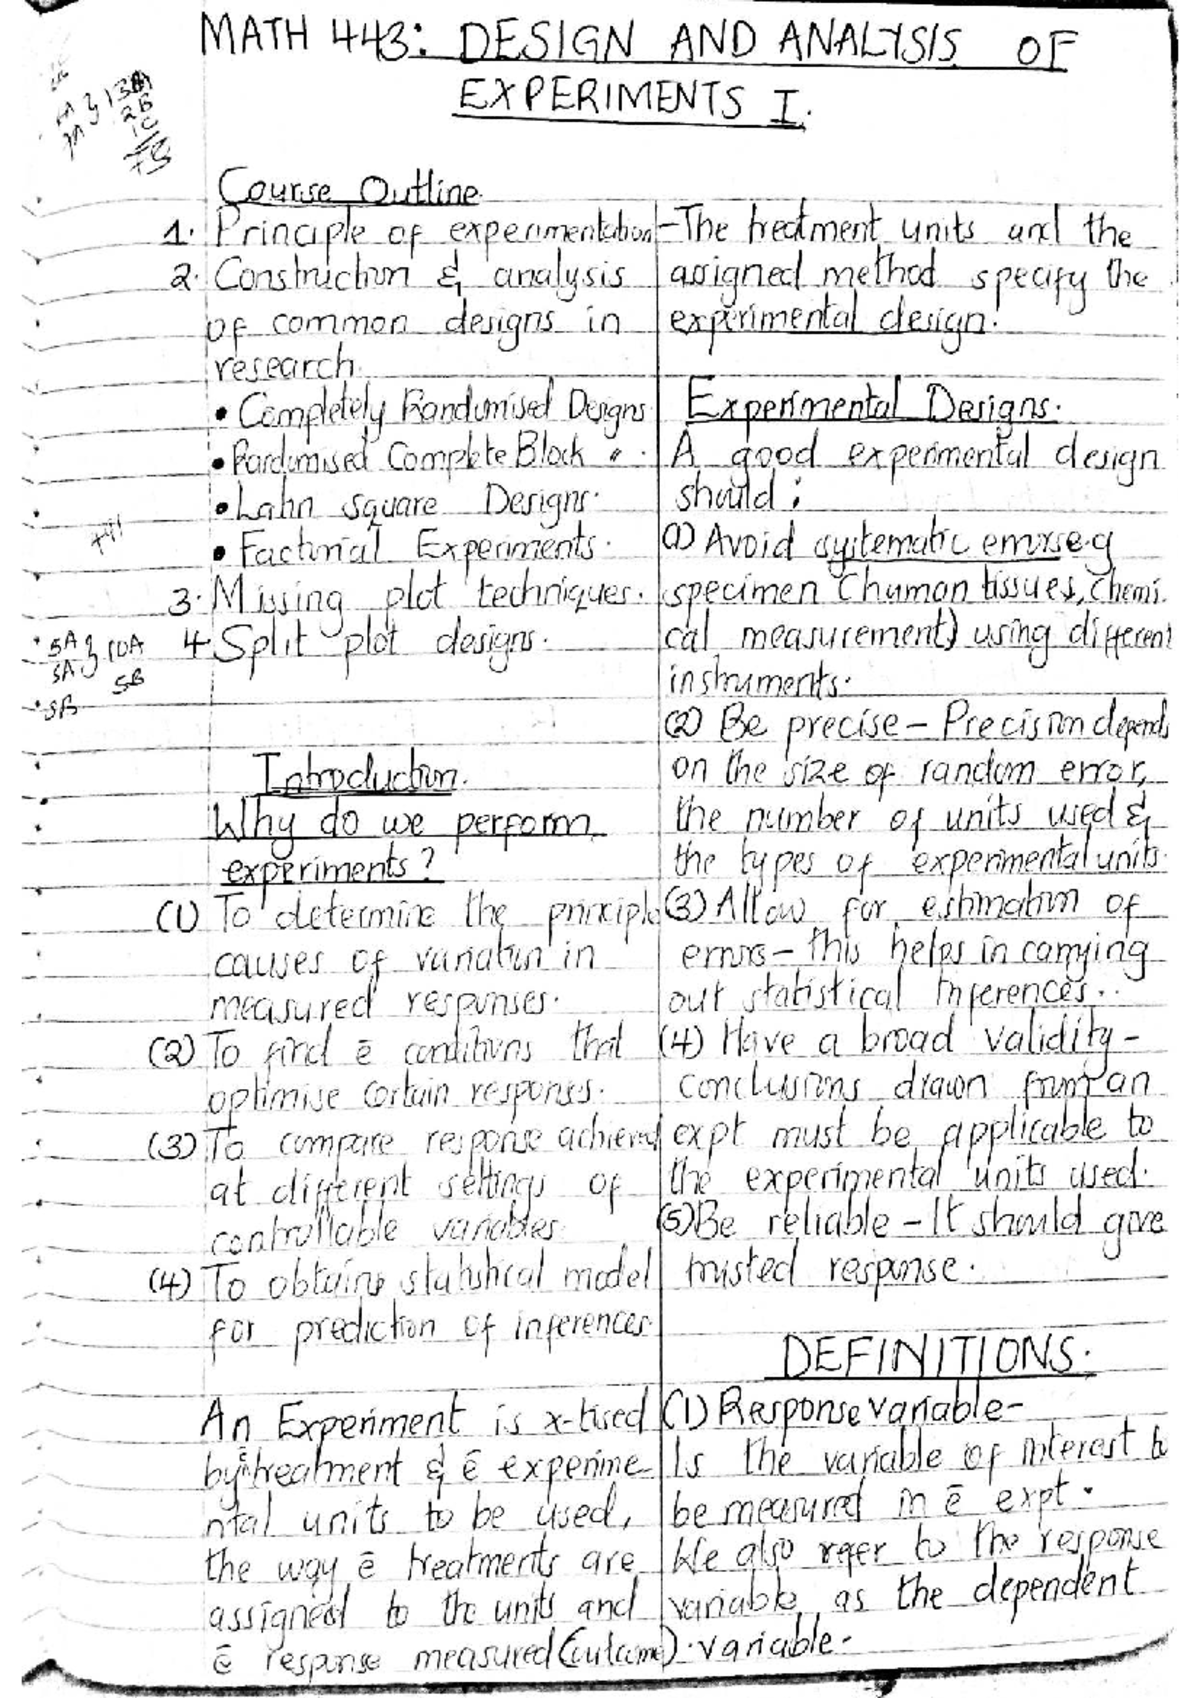 MATH 443: DESIGN AND ANALYSIS OF
EXPERIMENTS I.
Course Outline
1. Principle of experimentation
2. Construction & analysis
of common designs in
research.
• Completely Randomised Designs
• Randomised Complete Block " .
• Latin square Designs.
• Factorial Experiments.
3. Missing plot techniques.
4. Split plot designs.
Introduction.
Why do we perform
experiments?
(1) To determine the principle
causes of variation in
measured responses.
(2) To find ē conditions that
optimise certain responses.
(3) To compare response achieved
at different settings of
controllable variables
(4) To obtain statistical model
for prediction of inferences.
An Experiment is x-tised
by ē treatment & ē experime-
ntal units to be used,
the way ē treatments are
assigned to the units and
ē response measured (outcome).
-The treatment units and the
assigned method specify the
experimental design.
Experimental Designs.
A good experimental design
should:
(1) Avoid systematic errors e.g
specimen (human tissues, chemi-
cal measurement) using different
instruments.
(2) Be precise - Precision depends
on the size of random error,
the number of units used &
the types of experimental units.
(3) Allow for estimation of
errors - this helps in carrying
out statistical inferences..
(4) Have a broad validity -
conclusions drawn from an
expt must be applicable to
the experimental units used.
(5) Be reliable - It should give
trusted response.
DEFINITIONS.
(1) Response variable -
Is the variable of interest to
be measured in ē expt.
We also refer to the response
variable as the dependent
variable.
5A } 10A
5A
5B
5B